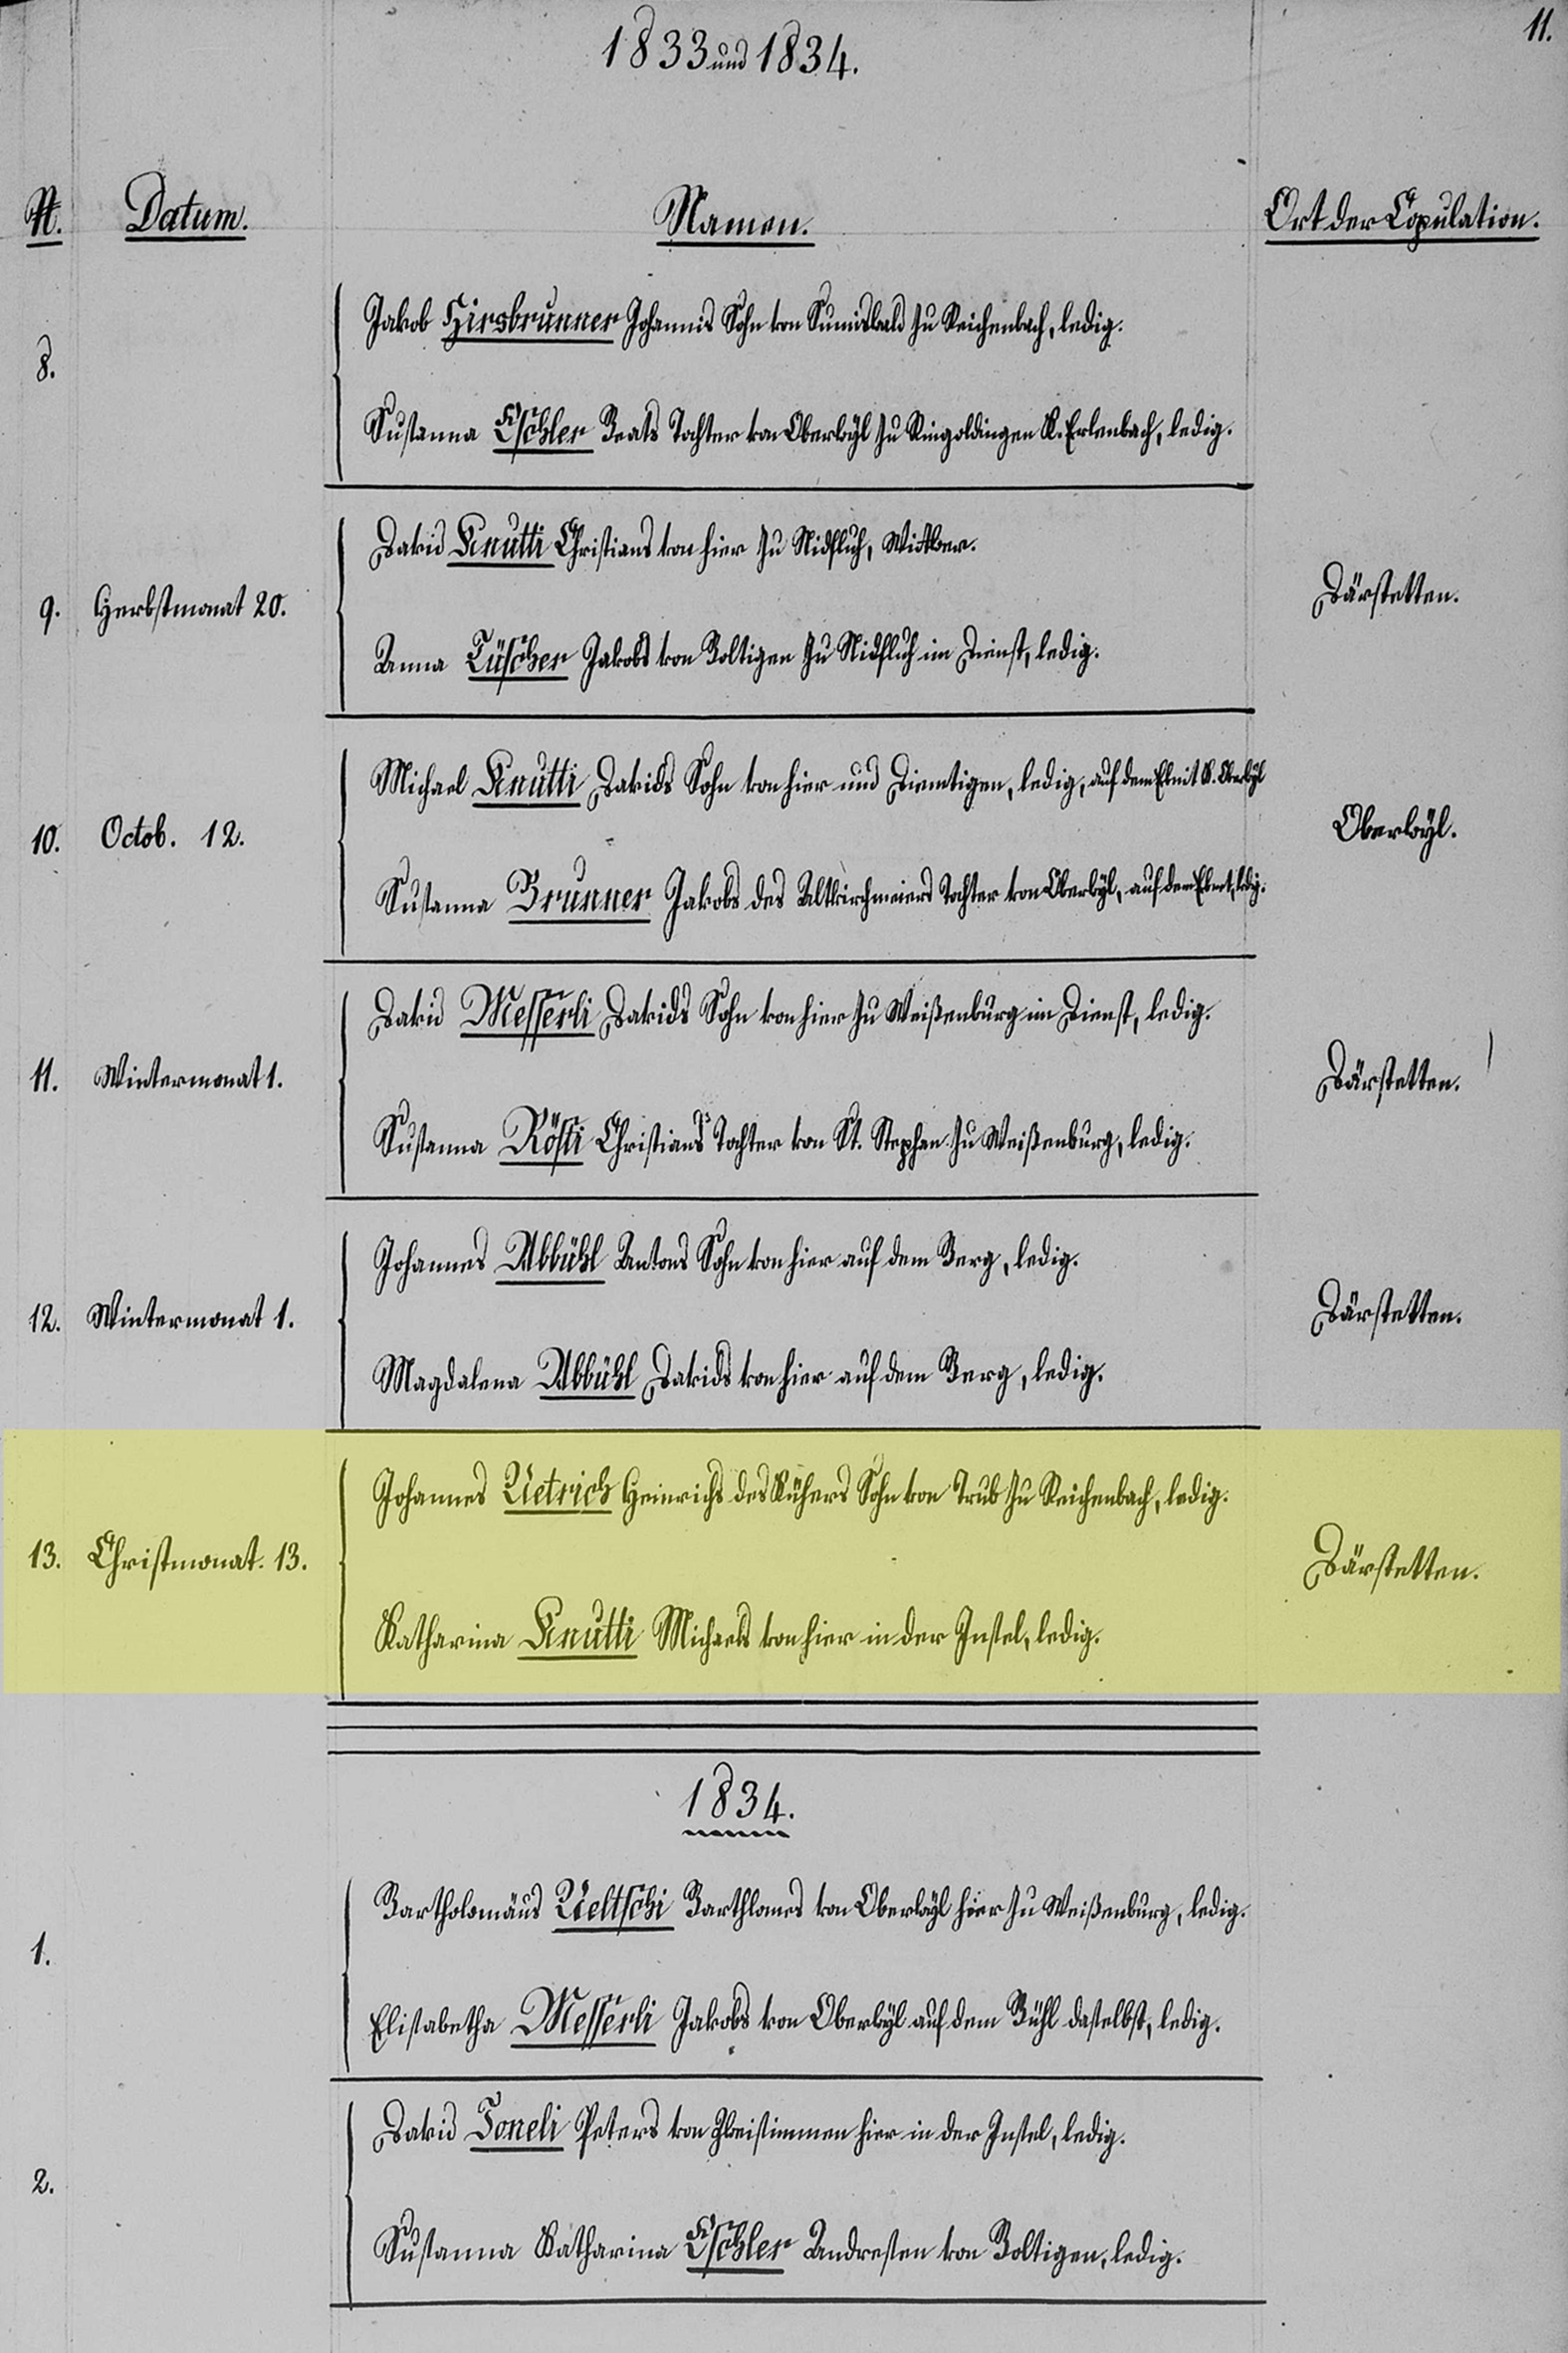 11.
1833 und 1834.
N. Datum. Namen. Ort der Copulation.
Jakob Hirsbrunner Johannis Sohn von Sumiswald zu Reichenbach, ledig.
8.
Susanna Eschler Beats Tochter von Oberwÿl zu Ringoldingen K. Erlenbach, ledig.
David Knutti Christians von hier zu Nidfluh, Wittwer.
9. Herbstmonat 20. Därstetten.
Anna Tüscher Jakobs von Boltigen zu Nidfluh im Dienst, ledig.
Michael Knutti Davids Sohn von hier und Diemtigen, ledig, auf dem Ebnit K. Oberwÿl
10. Octob. 12. Oberwÿl.
Susanna Brunner Jakobs des Altkirchmeiers Tochter von Oberwÿl, auf dem Ebnet, ledig.
David Messerli Davids Sohn von hier zu Weißenburg im Dienst, ledig.
11. Wintermonat 1. Därstetten.
Susanna Rösti Christians Tochter von St. Stephan zu Weißenburg, ledig.
Johannes Abbühl Antons Sohn von hier auf dem Berg, ledig.
12. Wintermonat 1. Därstetten.
Magdalena Abbühl Davids von hier auf dem Berg, ledig.
Johannes Uetrich Heinrichs des Kühers Sohn von Trub zu Reichenbach, ledig.
13. Christmonat. 13. Därstetten.
Katharina Knutti Michaels von hier in der Instel, ledig.
1834.
Bartholomäus Ueltschi Barthlomes von Oberwÿl hier zu Weißenburg, ledig.
1.
Elisabetha Messerli Jakobs von Oberwÿl auf dem Bühl daselbst, ledig.
David Toneli Peters von Zweisimmen hier in der Instel, ledig.
2.
Susanna Katharina Eschler Andresen von Boltigen, ledig.